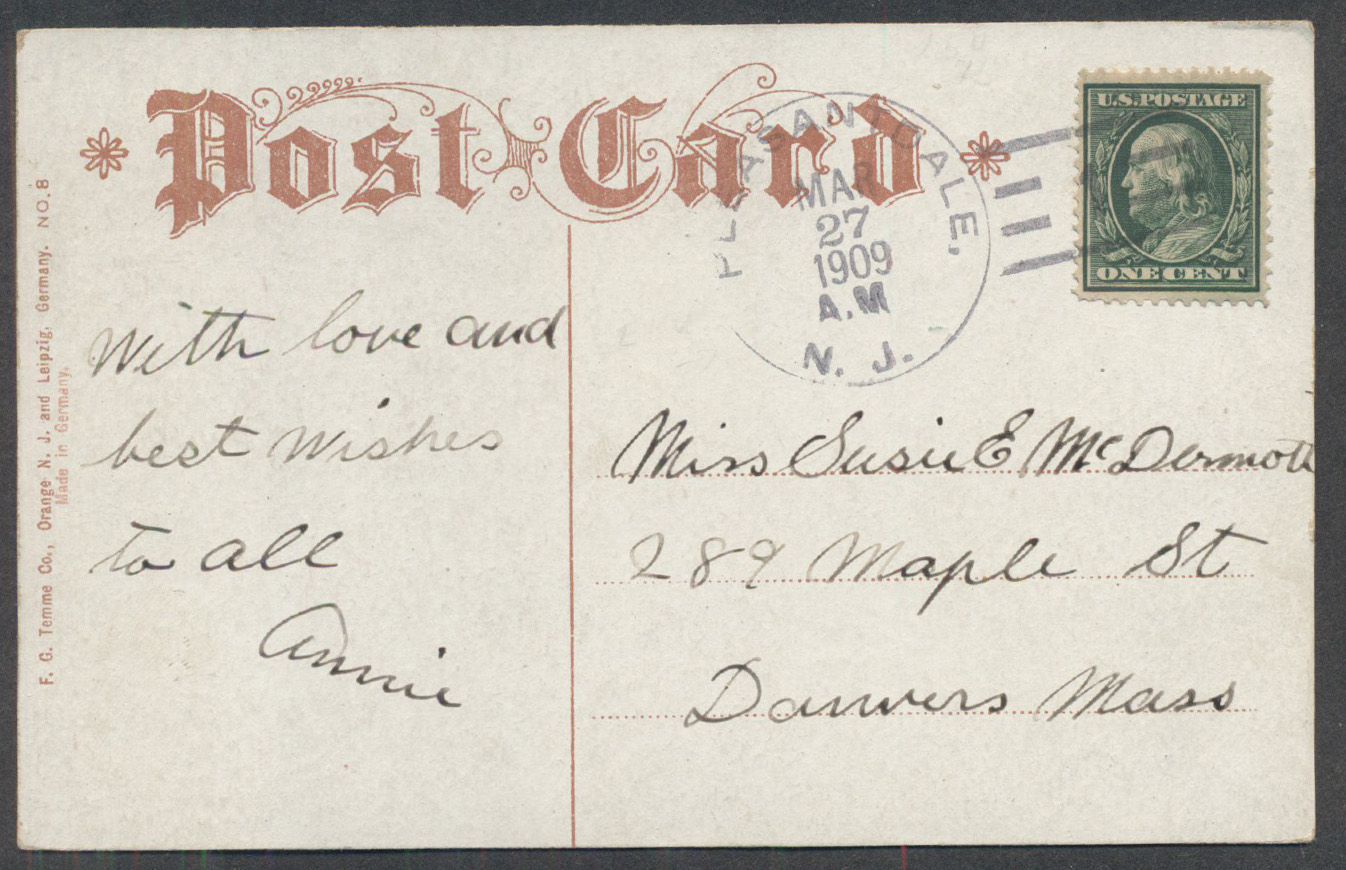 Post Card
PLEASANTDALE,
MAR
27
1909
A.M
N. J.
U.S. POSTAGE
ONE CENT
F. G. Temme Co., Orange N. J. and Leipzig, Germany. NO. 8
Made in Germany.
With love and
best wishes
to all
Annie
Miss Susie E McDermott
289 Maple St
Danvers Mass